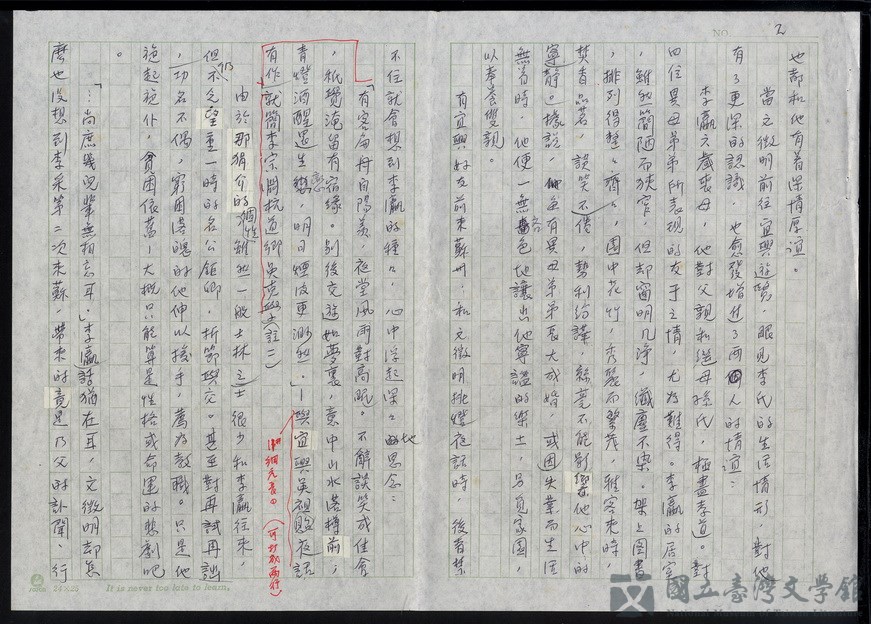 NO. 2
也都和他有着深情厚誼。
當文徵明前往宜興遊覽,眼見李氏的生活情形,對他
有了更深的認識,也愈發增進了兩個人的情誼:
李瀛六歲喪母,他對父親和繼母孫氏,極盡孝道。對
四位異母弟弟所表現的友于之情,尤為難得。李瀛的居室
,雖然簡陋而狹窄,但却窗明几淨,纖塵不染。架上圖書
,排列得整整齊齊,園中花竹,秀麗而繁茂,雅客來時,
焚香品茗,談笑不倦,勢利紛譁,絲毫不能影響他心中的
寧靜。據說,他並有異母弟弟長大成婚,或因失業而生活
無着時,他便一無吝色地讓出他寧謐的樂土,另覓家園,
以奉養雙親。
有宜興好友前來蘇州,和文徵明挑燈夜話時,後者禁
不住就會想到李瀛的種種,心中浮起深深地思念:
「有客扁舟自陽羨,夜堂風雨對高眠。不解談笑成佳會
,秪覺淹留有宿緣。別後交遊如夢裏,意中山水落樽前,
青燈酒醒還生戀,明日煙波更渺然。」—與宜興吳祖貽夜話
有作就簡李宗淵杭道卿吳克學(註一)
細光亮。(可抄成兩行)
由於那狷介的個性雖然一般士林之士很少和李瀛往來,
但仍不乏望重一時的名公鉅卿,折節與交。甚至對再試再詘
,功名不偶,窮困落魄的他伸以援手,薦為教職。只是他
施起旋仆,貧困依舊—大概只能算是性格或命運的悲劇吧
。
「…尚庶幾兒輩無相忘耳。」李瀛話猶在耳,文徵明却怎
麼也沒想到李采第二次來蘇,帶來的竟是乃父的訃聞、行
24×25
It is never too late to learn.
國立臺灣文學館